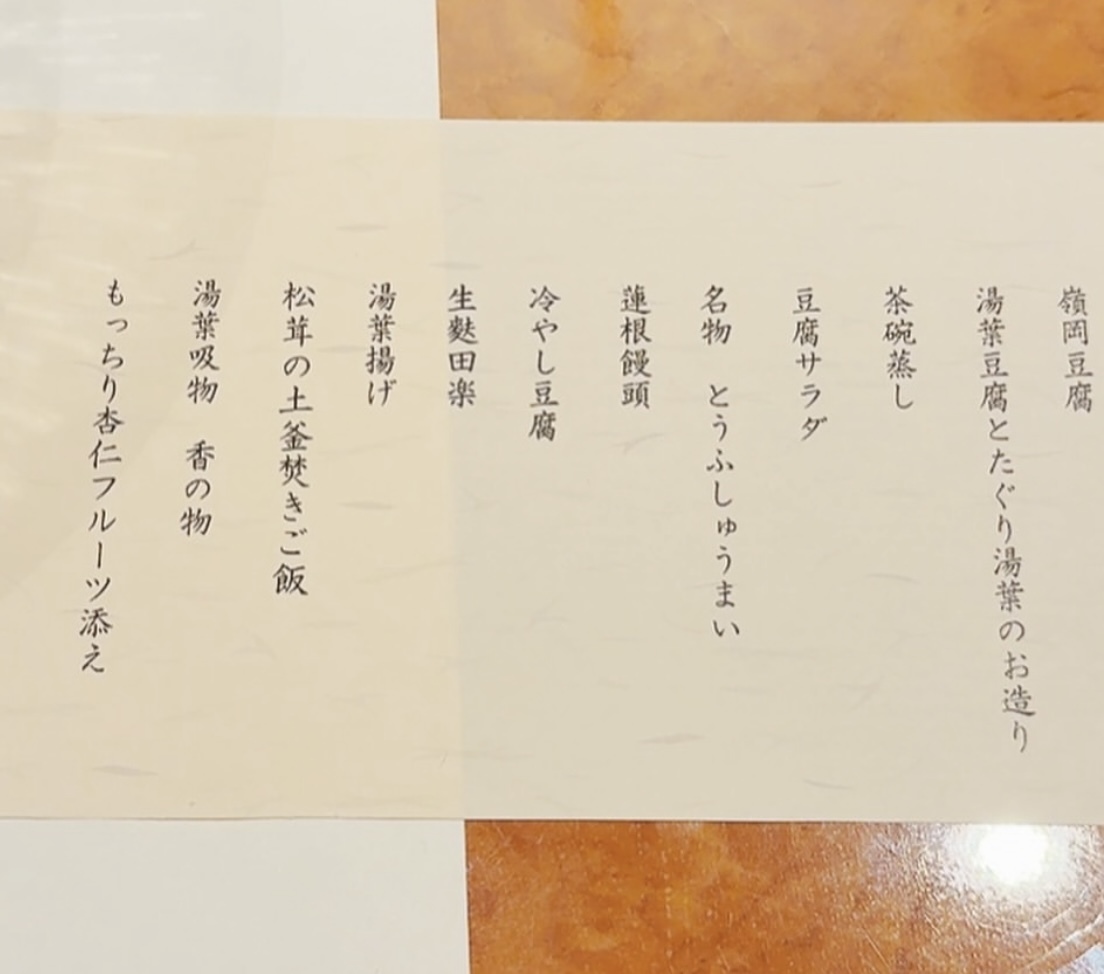 嶺岡豆腐
湯葉豆腐とたぐり湯葉のお造り
茶碗蒸し
豆腐サラダ
名物　とうふしゅうまい
蓮根饅頭
冷やし豆腐
生麩田楽
湯葉揚げ
松茸の土釜焚きご飯
湯葉吸物　香の物
もっちり杏仁フルーツ添え